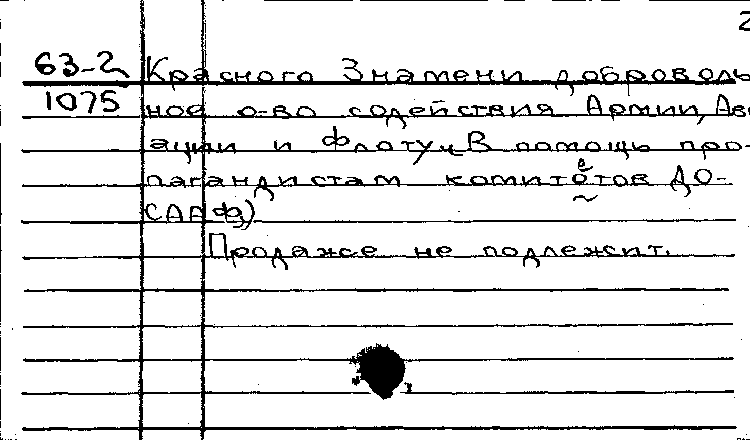 2
63-2 Красного Знамени доброволь
1075 ное о-во содействия Армии, Ави
ации и Флоту. "В помощь про-
пагандистам комитетов ДО-
СААФ")
Продаже не подлежит.